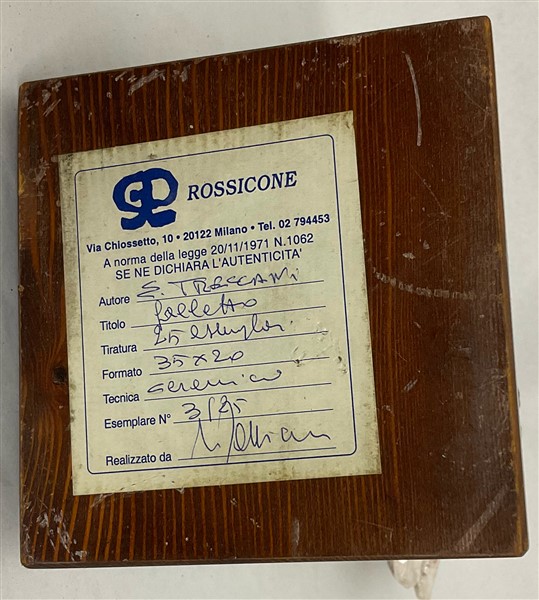 ROSSICONE
Via Chiossetto, 10 • 20122 Milano • Tel. 02 794453
A norma della legge 20/11/1971 N.1062
SE NE DICHIARA L'AUTENTICITA'
Autore E. TRECCANI
Titolo Galletto
Tiratura 25 esemplari
Formato 35x20
Tecnica ceramica
Esemplare N° 3/25
Realizzato da